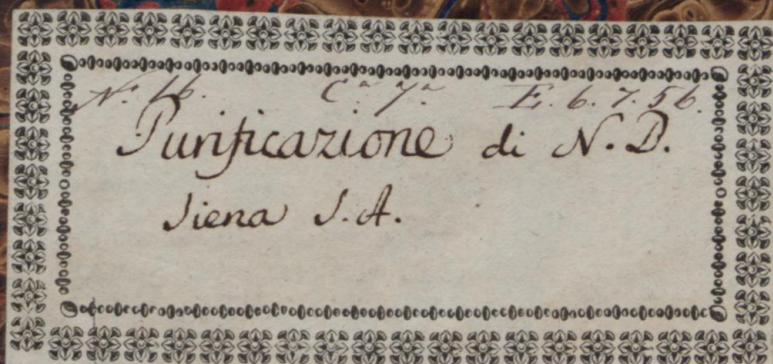 N.º 16. C.ª 7.ª E. 6. 7. 56.
Purificazione di N. D.
Siena S. A.